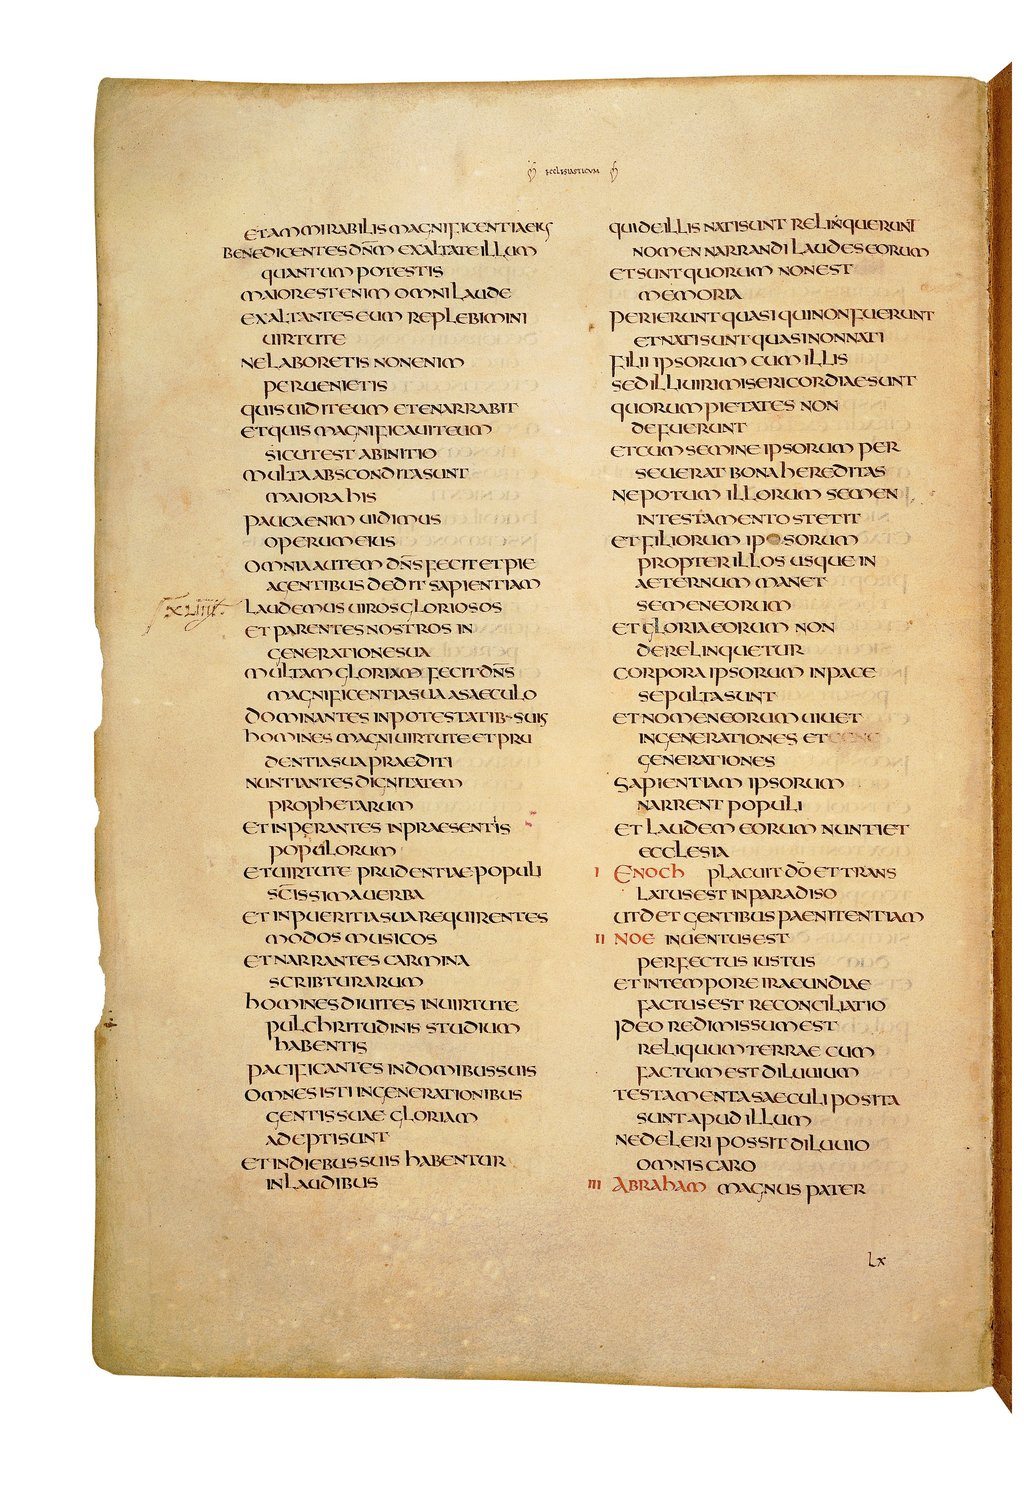 ECCLESIASTICUM
ETAMMIRABILIS MAGNIFICENTIA EIUS
BENEDICENTES DN̄M EXALTATE ILLUM
QUANTUM POTESTIS
MAIOR EST ENIM OMNI LAUDE
EXALTANTES EUM REPLEBIMINI
UIRTUTE
NE LABORETIS NON ENIM
PERUENIETIS
QUIS UIDIT EUM ET ENARRABIT
ET QUIS MAGNIFICAUIT EUM
SICUT EST AB INITIO
MULTA ABSCONDITA SUNT
MAIORA HIS
PAUCA ENIM UIDIMUS
OPERUM EIUS
OMNIA AUTEM DN̄S FECIT ET PIE
AGENTIBUS DEDIT SAPIENTIAM
XLIIII
LAUDEMUS UIROS GLORIOSOS
ET PARENTES NOSTROS IN
GENERATIONE SUA
MULTAM GLORIAM FECIT DN̄S
MAGNIFICENTIA SUA A SAECULO
DOMINANTES IN POTESTATIB· SUIS
HOMINES MAGNI UIRTUTE ET PRU
DENTIA SUA PRAEDITI
NUNTIANTES DIGNITATEM
PROPHETARUM
ET INPERANTES IN PRAESENTIS
POPULORUM
ET UIRTUTE PRUDENTIAE POPULI
SC̄ISSIMA UERBA
ET IN PUERITIA SUA REQUIRENTES
MODOS MUSICOS
ET NARRANTES CARMINA
SCRIBTURARUM
HOMINES DIUITES IN UIRTUTE
PULCHRITUDINIS STUDIUM
HABENTIS
PACIFICANTES IN DOMIBUS SUIS
OMNES ISTI IN GENERATIONIBUS
GENTIS SUAE GLORIAM
ADEPTI SUNT
ET IN DIEBUS SUIS HABENTUR
IN LAUDIBUS
QUI DE ILLIS NATI SUNT RELINQUERUNT
NOMEN NARRANDI LAUDES EORUM
ET SUNT QUORUM NON EST
MEMORIA
PERIERUNT QUASI QUI NON FUERUNT
ET NATI SUNT QUASI NON NATI
FILII IPSORUM CUM ILLIS
SED ILLI UIRI MISERICORDIAE SUNT
QUORUM PIETATES NON
DEFUERUNT
ET CUM SEMINE IPSORUM PER
SEUERAT BONA HEREDITAS
NEPOTUM ILLORUM SEMEN
IN TESTAMENTO STETIT
ET FILIORUM IPSORUM
PROPTER ILLOS USQUE IN
AETERNUM MANET
SEMEN EORUM
ET GLORIA EORUM NON
DERELINQUETUR
CORPORA IPSORUM IN PACE
SEPULTA SUNT
ET NOMEN EORUM UIUET
IN GENERATIONES ET
GENERATIONES
SAPIENTIAM IPSORUM
NARRENT POPULI
ET LAUDEM EORUM NUNTIET
ECCLESIA
I ENOCH PLACUIT DO̅ ET TRANS
LATUS EST IN PARADISO
UT DET GENTIBUS PAENITENTIAM
II NOE INUENTUS EST
PERFECTUS IUSTUS
ET IN TEMPORE IRAECUNDIAE
FACTUS EST RECONCILIATIO
IDEO REDIMISSUM EST
RELIQUUM TERRAE CUM
FACTUM EST DILUUIUM
TESTAMENTA SAECULI POSITA
SUNT APUD ILLUM
NE DELERI POSSIT DILUUIO
OMNIS CARO
III ABRAHAM MAGNUS PATER
LX